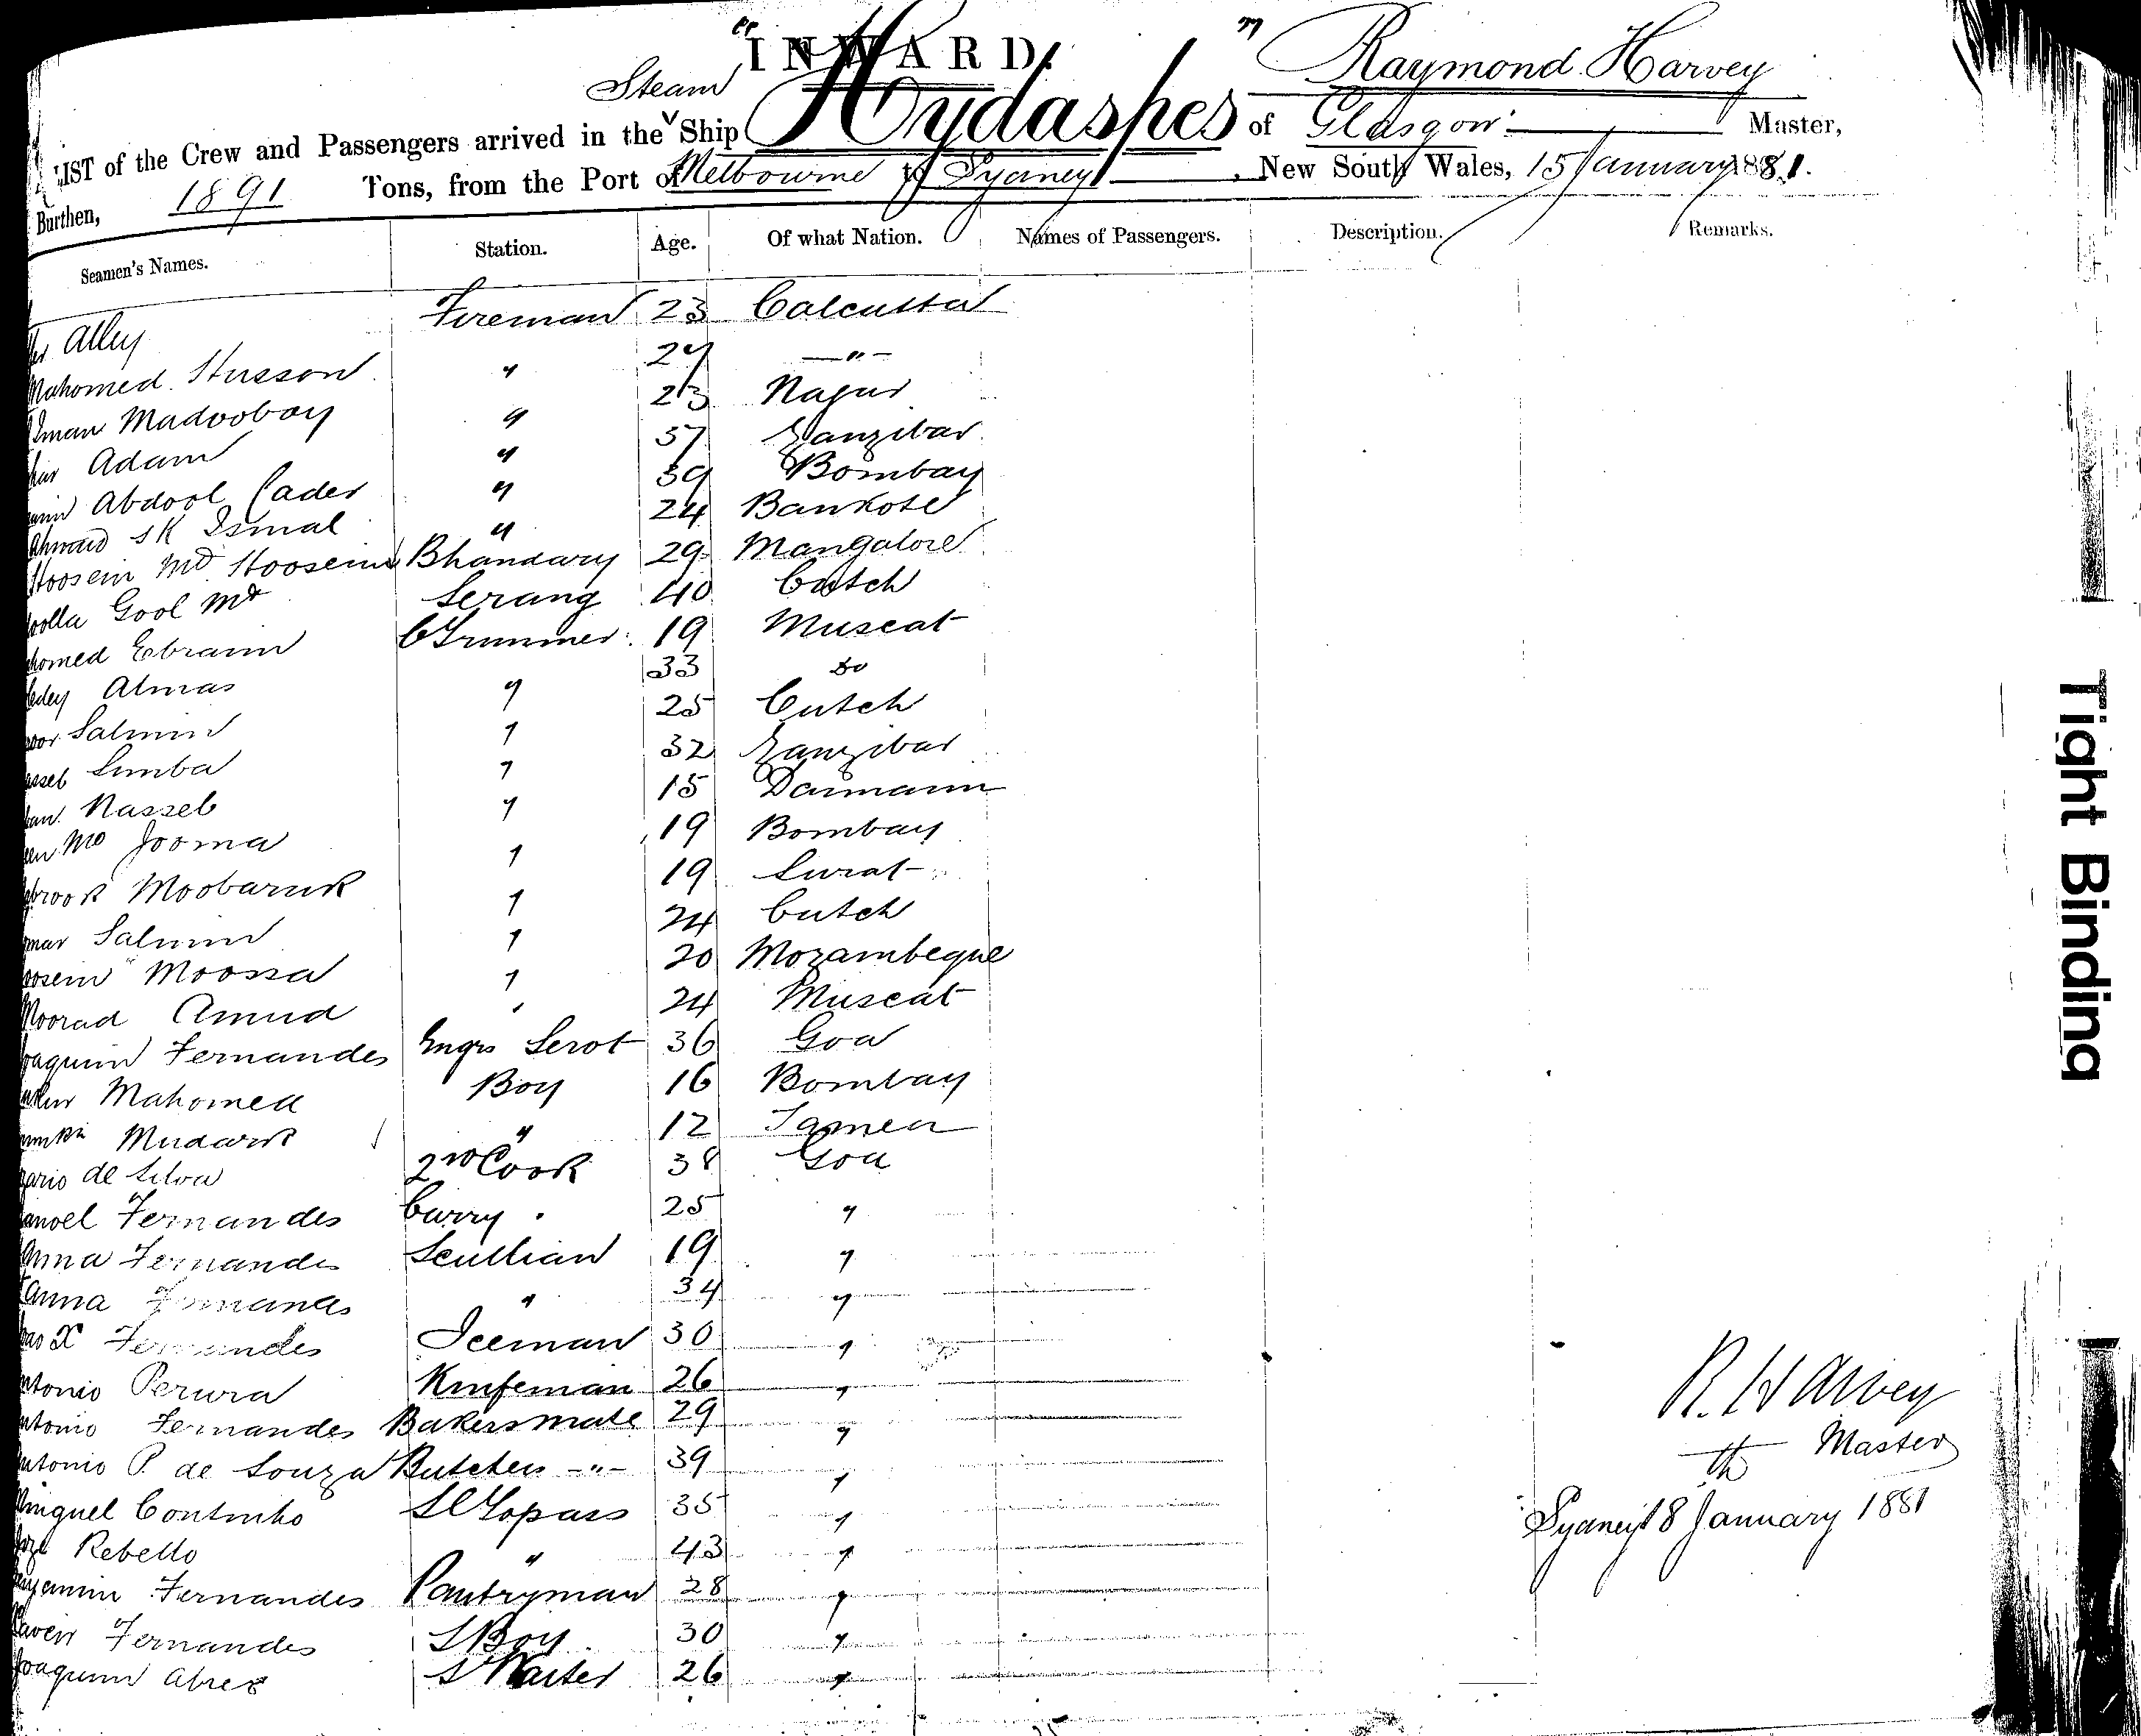 INWARD.
Steam
Raymond Harvey
LIST of the Crew and Passengers arrived in the Ship Hydaspes of Glasgow Master,
Burthen, 1891 Tons, from the Port of Melbourne to Sydney, New South Wales, 15 January 1881.
Seamen's Names. Station. Age. Of what Nation. Names of Passengers. Description. Remarks.
Alley Fireman 23 Calcutta
Mahomed Husson " 27 "
Madooboy " 23
Adam " 37 Zanzibar
Abdool Cader " 39 Bombay
Ahmed SK Ismal " 24 Bankote
Hoosein Md Hoosein Bhandary 29 Mangalore
Gool Md Serang 40 Cutch
Ebraim CTrimmer 19 Muscat
Almas " 33 Do
Salmin " 25 Cutch
Simba " 32 Zanzibar
Nasseb " 15 Damaun
Md Jooma " 19 Bombay
Moobaruk " 19 Surat
Salmin " 24 Cutch
Moossa " 20 Mozambeque
Moorad Amud " 24 Muscat
Joaquim Fernandes Engrs Servt 36 Goa
Mahomed Boy 16 Bombay
Mudarik " 12
de Silva 2nd Cook 38 Goa
Manoel Fernandes Curry " 25 "
Anna Fernandes Scullian 19 "
Fernandes " 34 "
X Fernandes Iceman 30 "
Antonio Perura Knifeman 26 "
Antonio Fernandes Bakers mate 29 "
Antonio P. de Souza Butchers " 39 "
Minguel Continho 35 "
Rebello " 43 "
Fernandes Pantryman 28 "
Fernandes S Boy 30 "
Joaquim S Waiter 26 "
R. Harvey
Master
Sydney 18 January 1881
Tight Binding